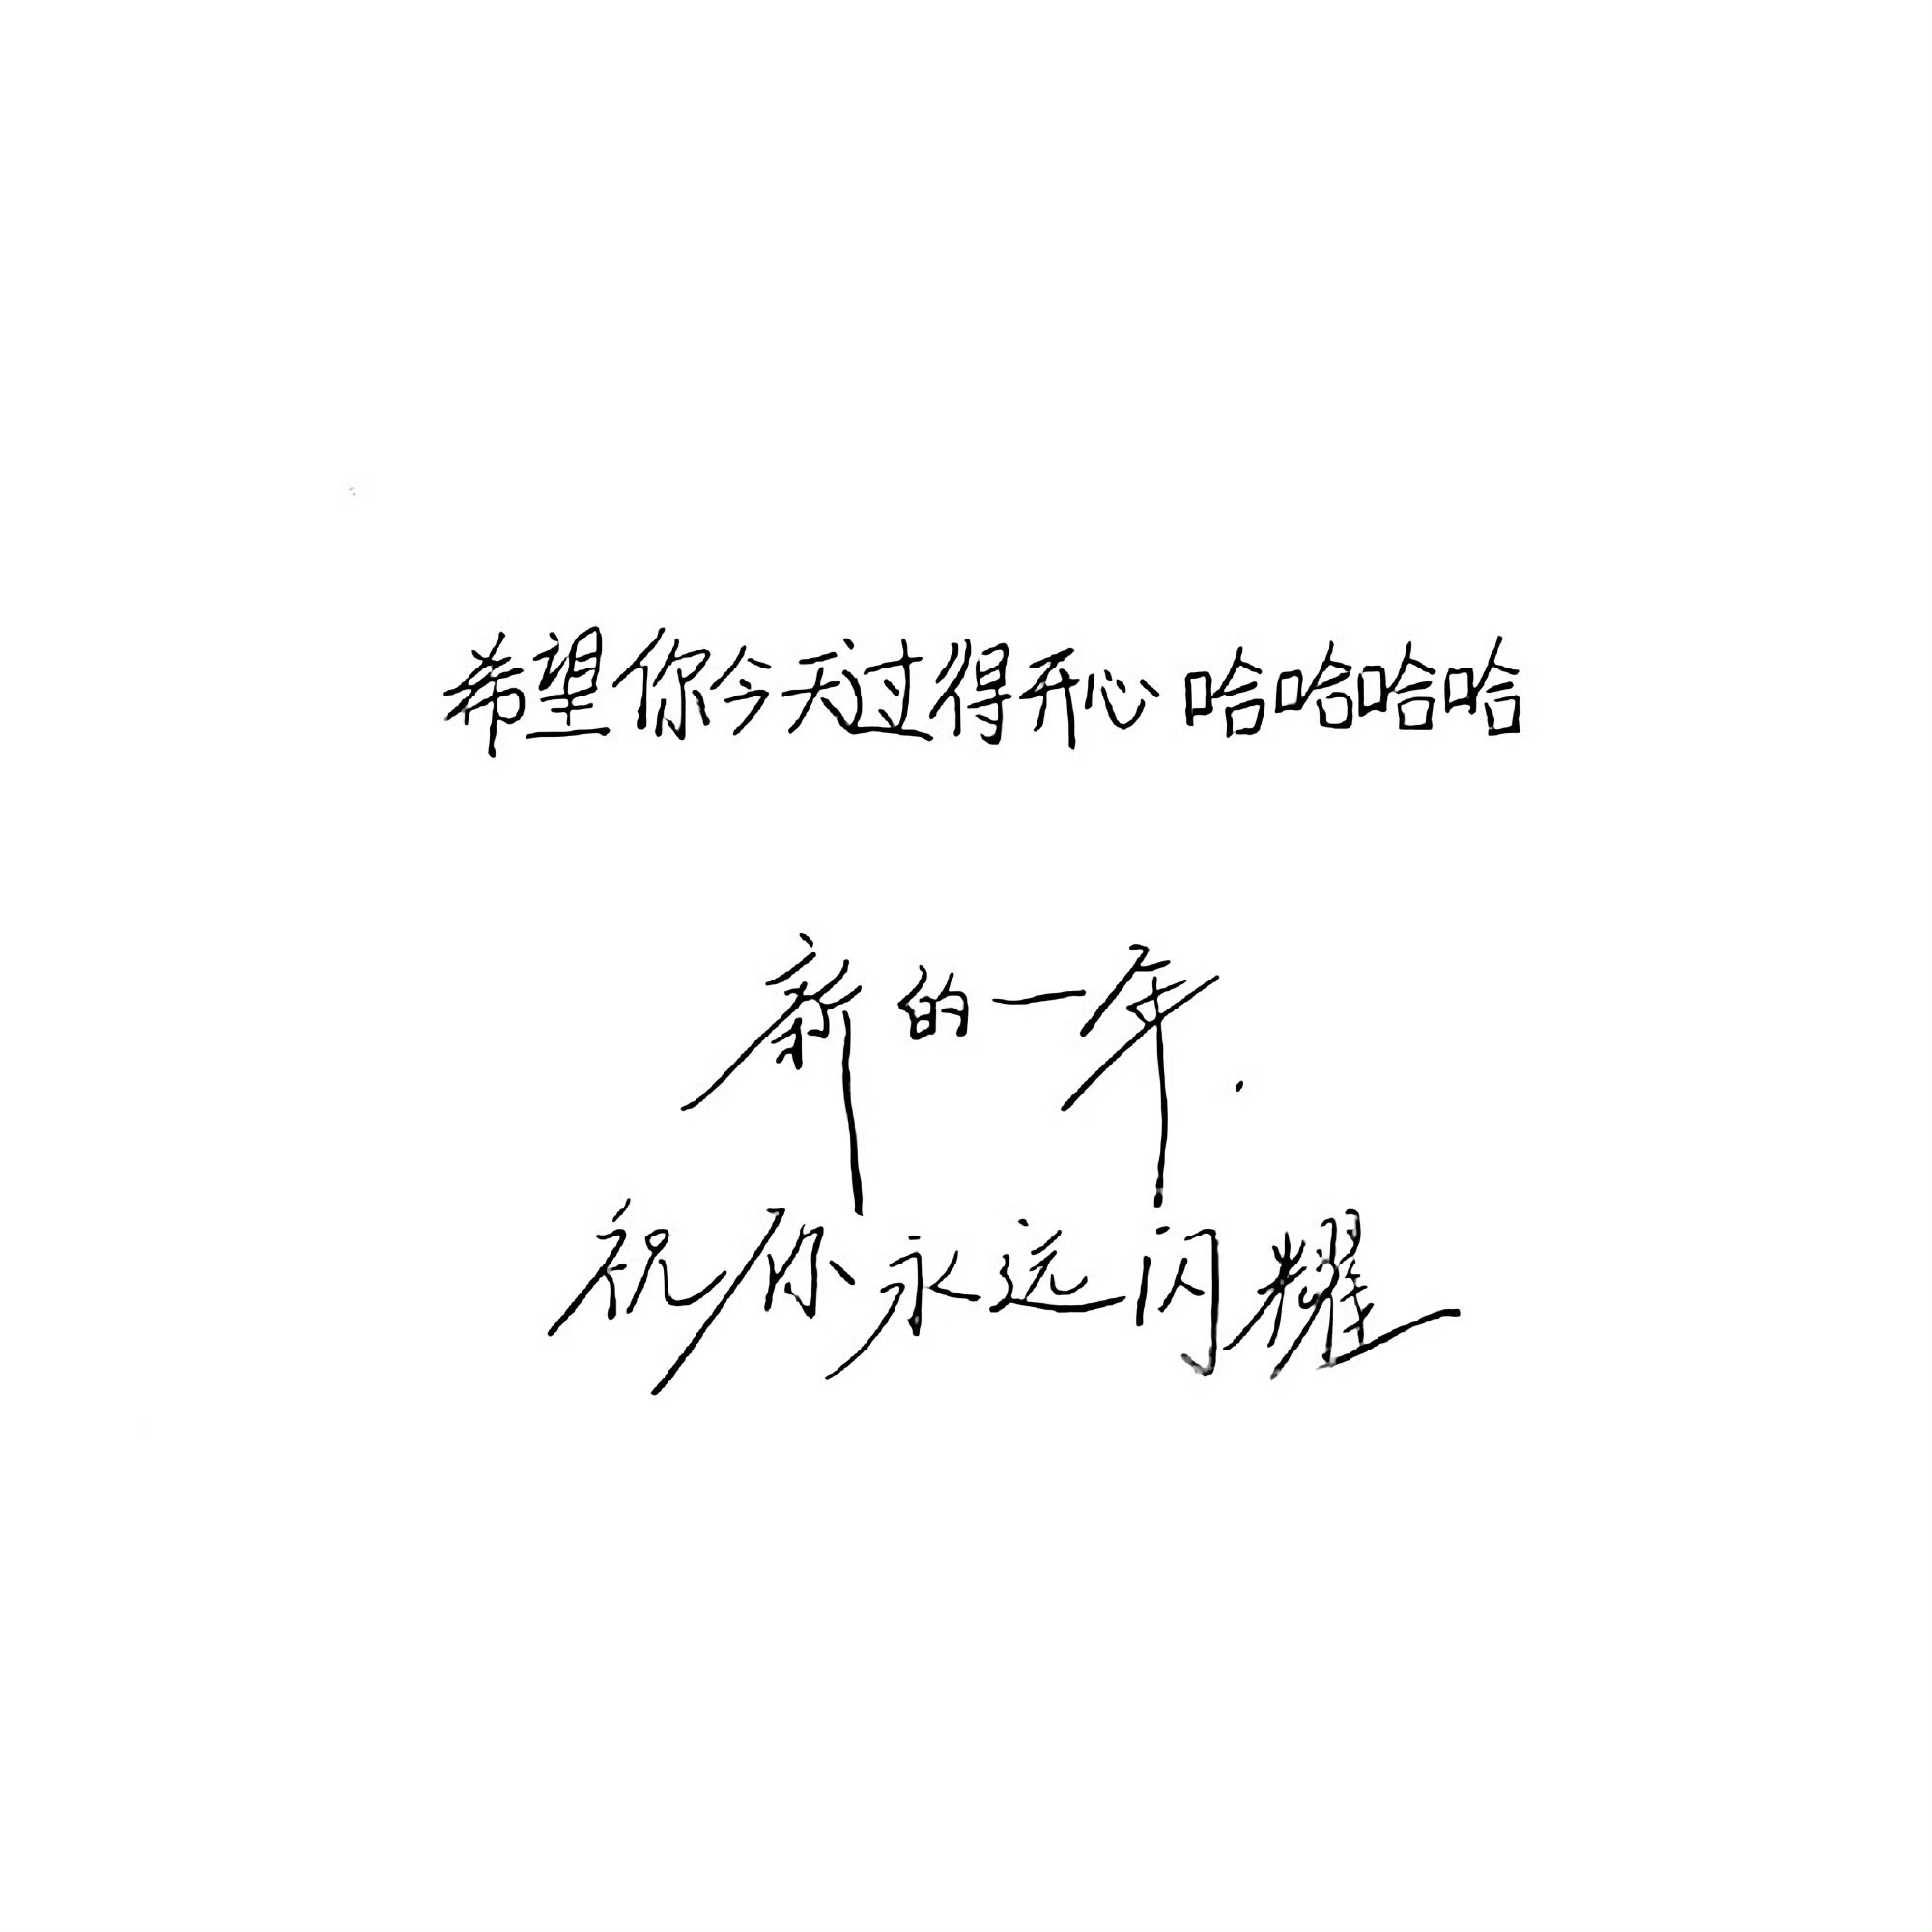 希望你今天过得开心 哈哈哈哈
新的一年.
祝你永远闪耀